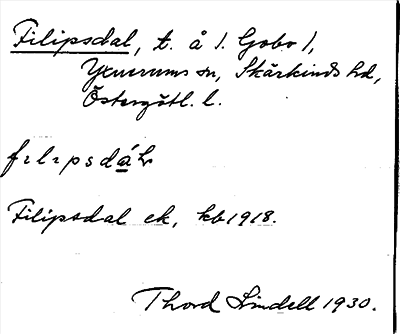 Filipsdal, t. å /. Gobo /,
Yxnerums sn, Skärkinds hd,
Östergötl. l.
fılıpsdáh
Filipsdal ek, kb 1918.
Thord Lindell 1930.